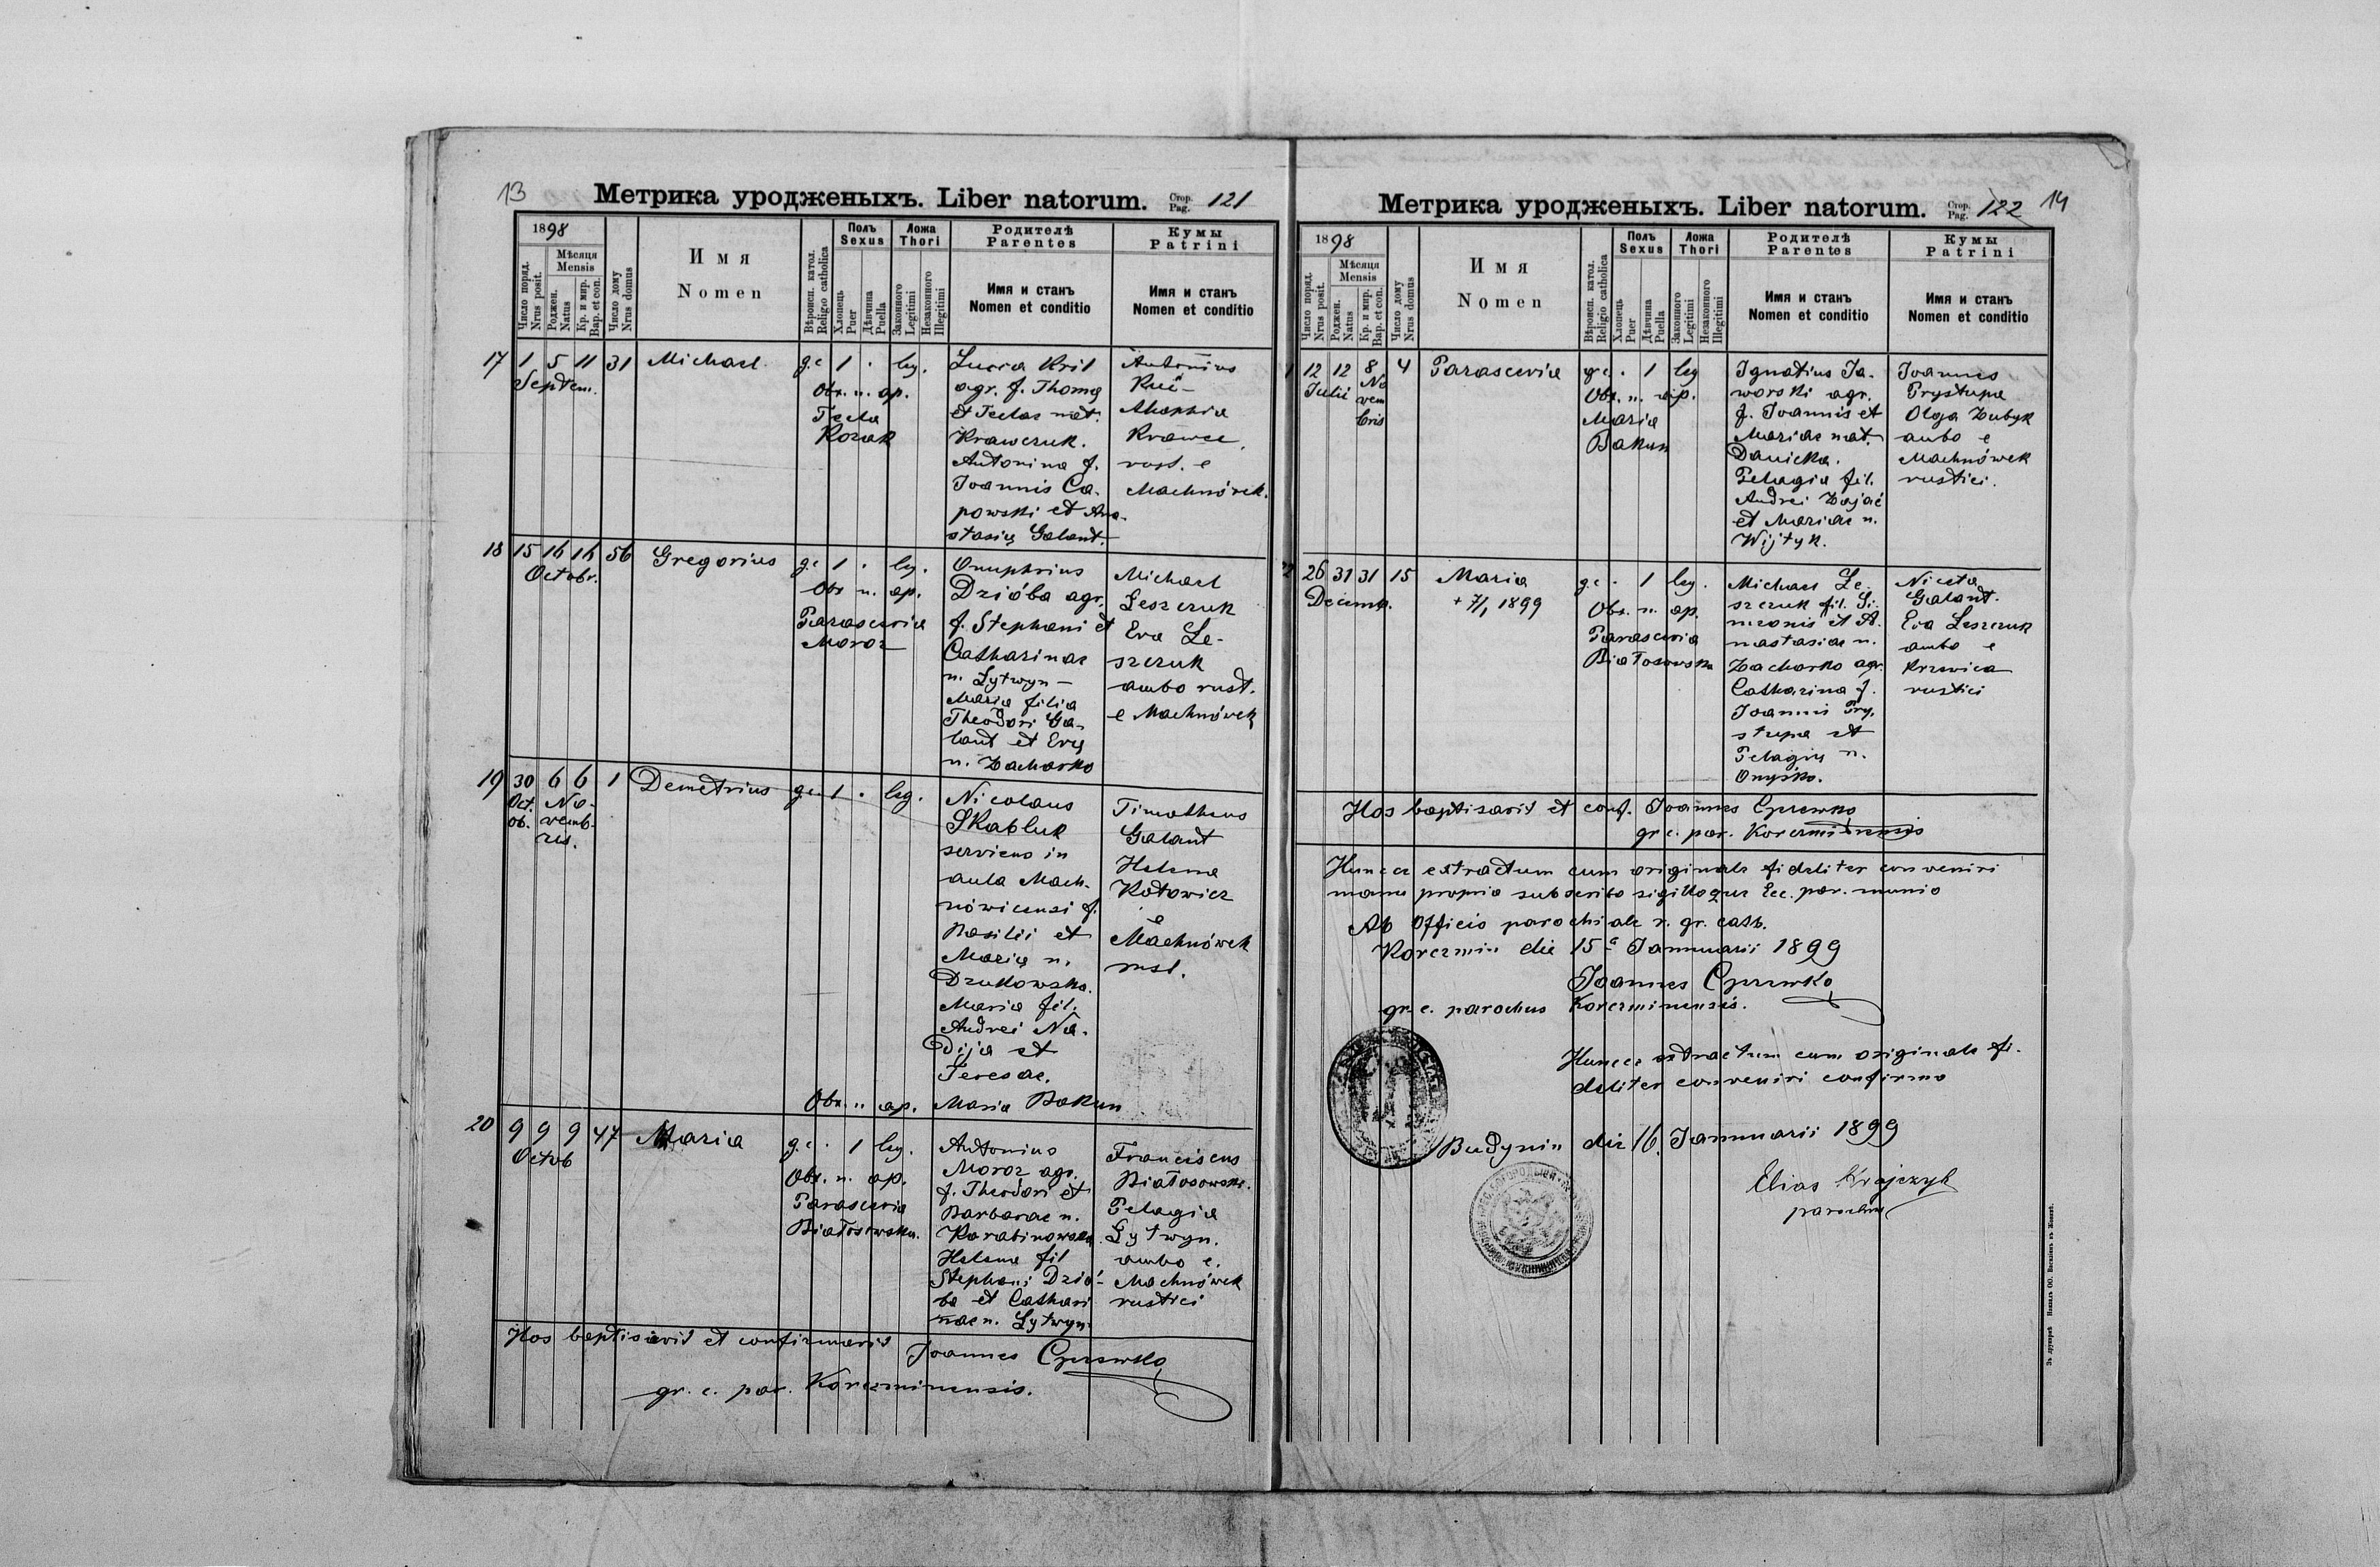 13
Метрика уродженыхъ. Liber natorum. Стор. Pag. 121
1898
Число поряд. Nrus posit.
Мѣсяця Mensis
Роджен. Natus
Кр. и мир. Bap. et con.
Число дому Nrus domus
Имя Nomen
Вѣроисп. катол. Religio catholica
Полъ Sexus
Хлопець Puer
Дѣвчина Puella
Ложа Thori
Законного Legitimi
Незаконного Illegitimi
Родителѣ Parentes
Имя и станъ Nomen et conditio
Кумы Patrini
Имя и станъ Nomen et conditio
17 1 5 11 31 Michael g.c 1 . leg.
Septem.
Obs. n. ap.
Tecla
Kozak
Lucca Kril
agr. f. Thomę
et Teclae nat.
Krawczuk.
Antonina f.
Joannis Ca-
powski et Ana-
stasię Galant.
Antonius
Maphria
Krawce
rust. e
Machnówek.
18 15 16 16 56 Gregorius g.c 1 . leg.
Octobr.
Obs n. ap.
Parascevia
Moroz
Onuphrius
Dzióba agr.
f. Stephani et
Catharinae
n. Lytwyn –
Maria filia
Theodori Ga-
lant et Evę
n. Zacharko
Michael
Leszczuk
Eva Le-
szczuk
ambo rust.
e Machnówek
19 30 6 6 1 Demetrius g.c 1 . leg.
Oct. No-
ob. vemb-
res.
Nicolaus
Skabluk
serviens in
aula Mach-
nówicensi f.
Basilii et
Marię n.
Dzukowska.
Maria fil.
Andrei Na-
dija et
Teresae.
Obs. n. ap. Maria Bakun
Timotheus
Galant
Helena
Kotowicz
e
Machnówek
rust.
20 9 9 9 47 Maria g.c . 1 leg.
Octob
Obs. n. ap.
Parascevia
Białosowska.
Antonius
Moroz agr.
f. Theodori et
Barbarae n.
Karabinowska
Helena fil
Stephani Dzió-
ba et Cathari
nae n. Lytwyn
Franciscus
Białosowski.
Pelagia
Lytwyn.
ambo e.
Machnówek
rustici
Hos baptisavit et confirmavit Joannes
gr. c. par. Korczminensis.
Метрика уродженыхъ. Liber natorum. Стор. Pag. 122 14
1898
Число поряд. Nrus posit.
Мѣсяця Mensis
Роджен. Natus
Кр. и мир. Bap. et con.
Число дому Nrus domus
Имя Nomen
Вѣроисп. катол. Religio catholica
Полъ Sexus
Хлопець Puer
Дѣвчина Puella
Ложа Thori
Законного Legitimi
Незаконного Illegitimi
Родителѣ Parentes
Имя и станъ Nomen et conditio
Кумы Patrini
Имя и станъ Nomen et conditio
12 12 8 4 Parascevia gr.c. . 1 leg
Julii No
vem
bris
Obs. n. ap.
Maria
Bakun
Ignatius Ja-
worski agr.
f. Joannis et
Mariae nat.
Danicka.
Pelagia fil.
Andrei Zając
et Mariae n.
Wijtyk.
Joannes
Prystupa
Olga Zubyk
ambo e
Machnówek
rustici.
26 31 31 15 Maria g.c . 1 leg.
Decemb. + 7/1 1899
Obs. n. ap.
Parascevia
Białosowska
Michael Le-
szczuk fil. Si-
meonis et A-
nastasiae n.
Zacharko agr.
Catharina f.
Joannis Pry-
stupa et
Pelagię n.
Onyśko.
Niceta
Galant.
Eva Leszczuk
ambo e
Krzewica
rustici
Hos baptisavit et conf. Joannes
gr c. par. Korczminensis
Huncce extractum cum originale fideliter conveniri
manu propria subscribo sigilloque Ecc. par. munio
Ab Officio parochiale r. gr. cath.
Korczmin die 15ª Jannuarii 1899
Joannes
gr. c. parochus Korczminensis.
Huncce extractum cum originale fi-
deliter conveniri confirmo
Budynin die 16. Jannuarii 1899
Elias Krajczyk
parochus